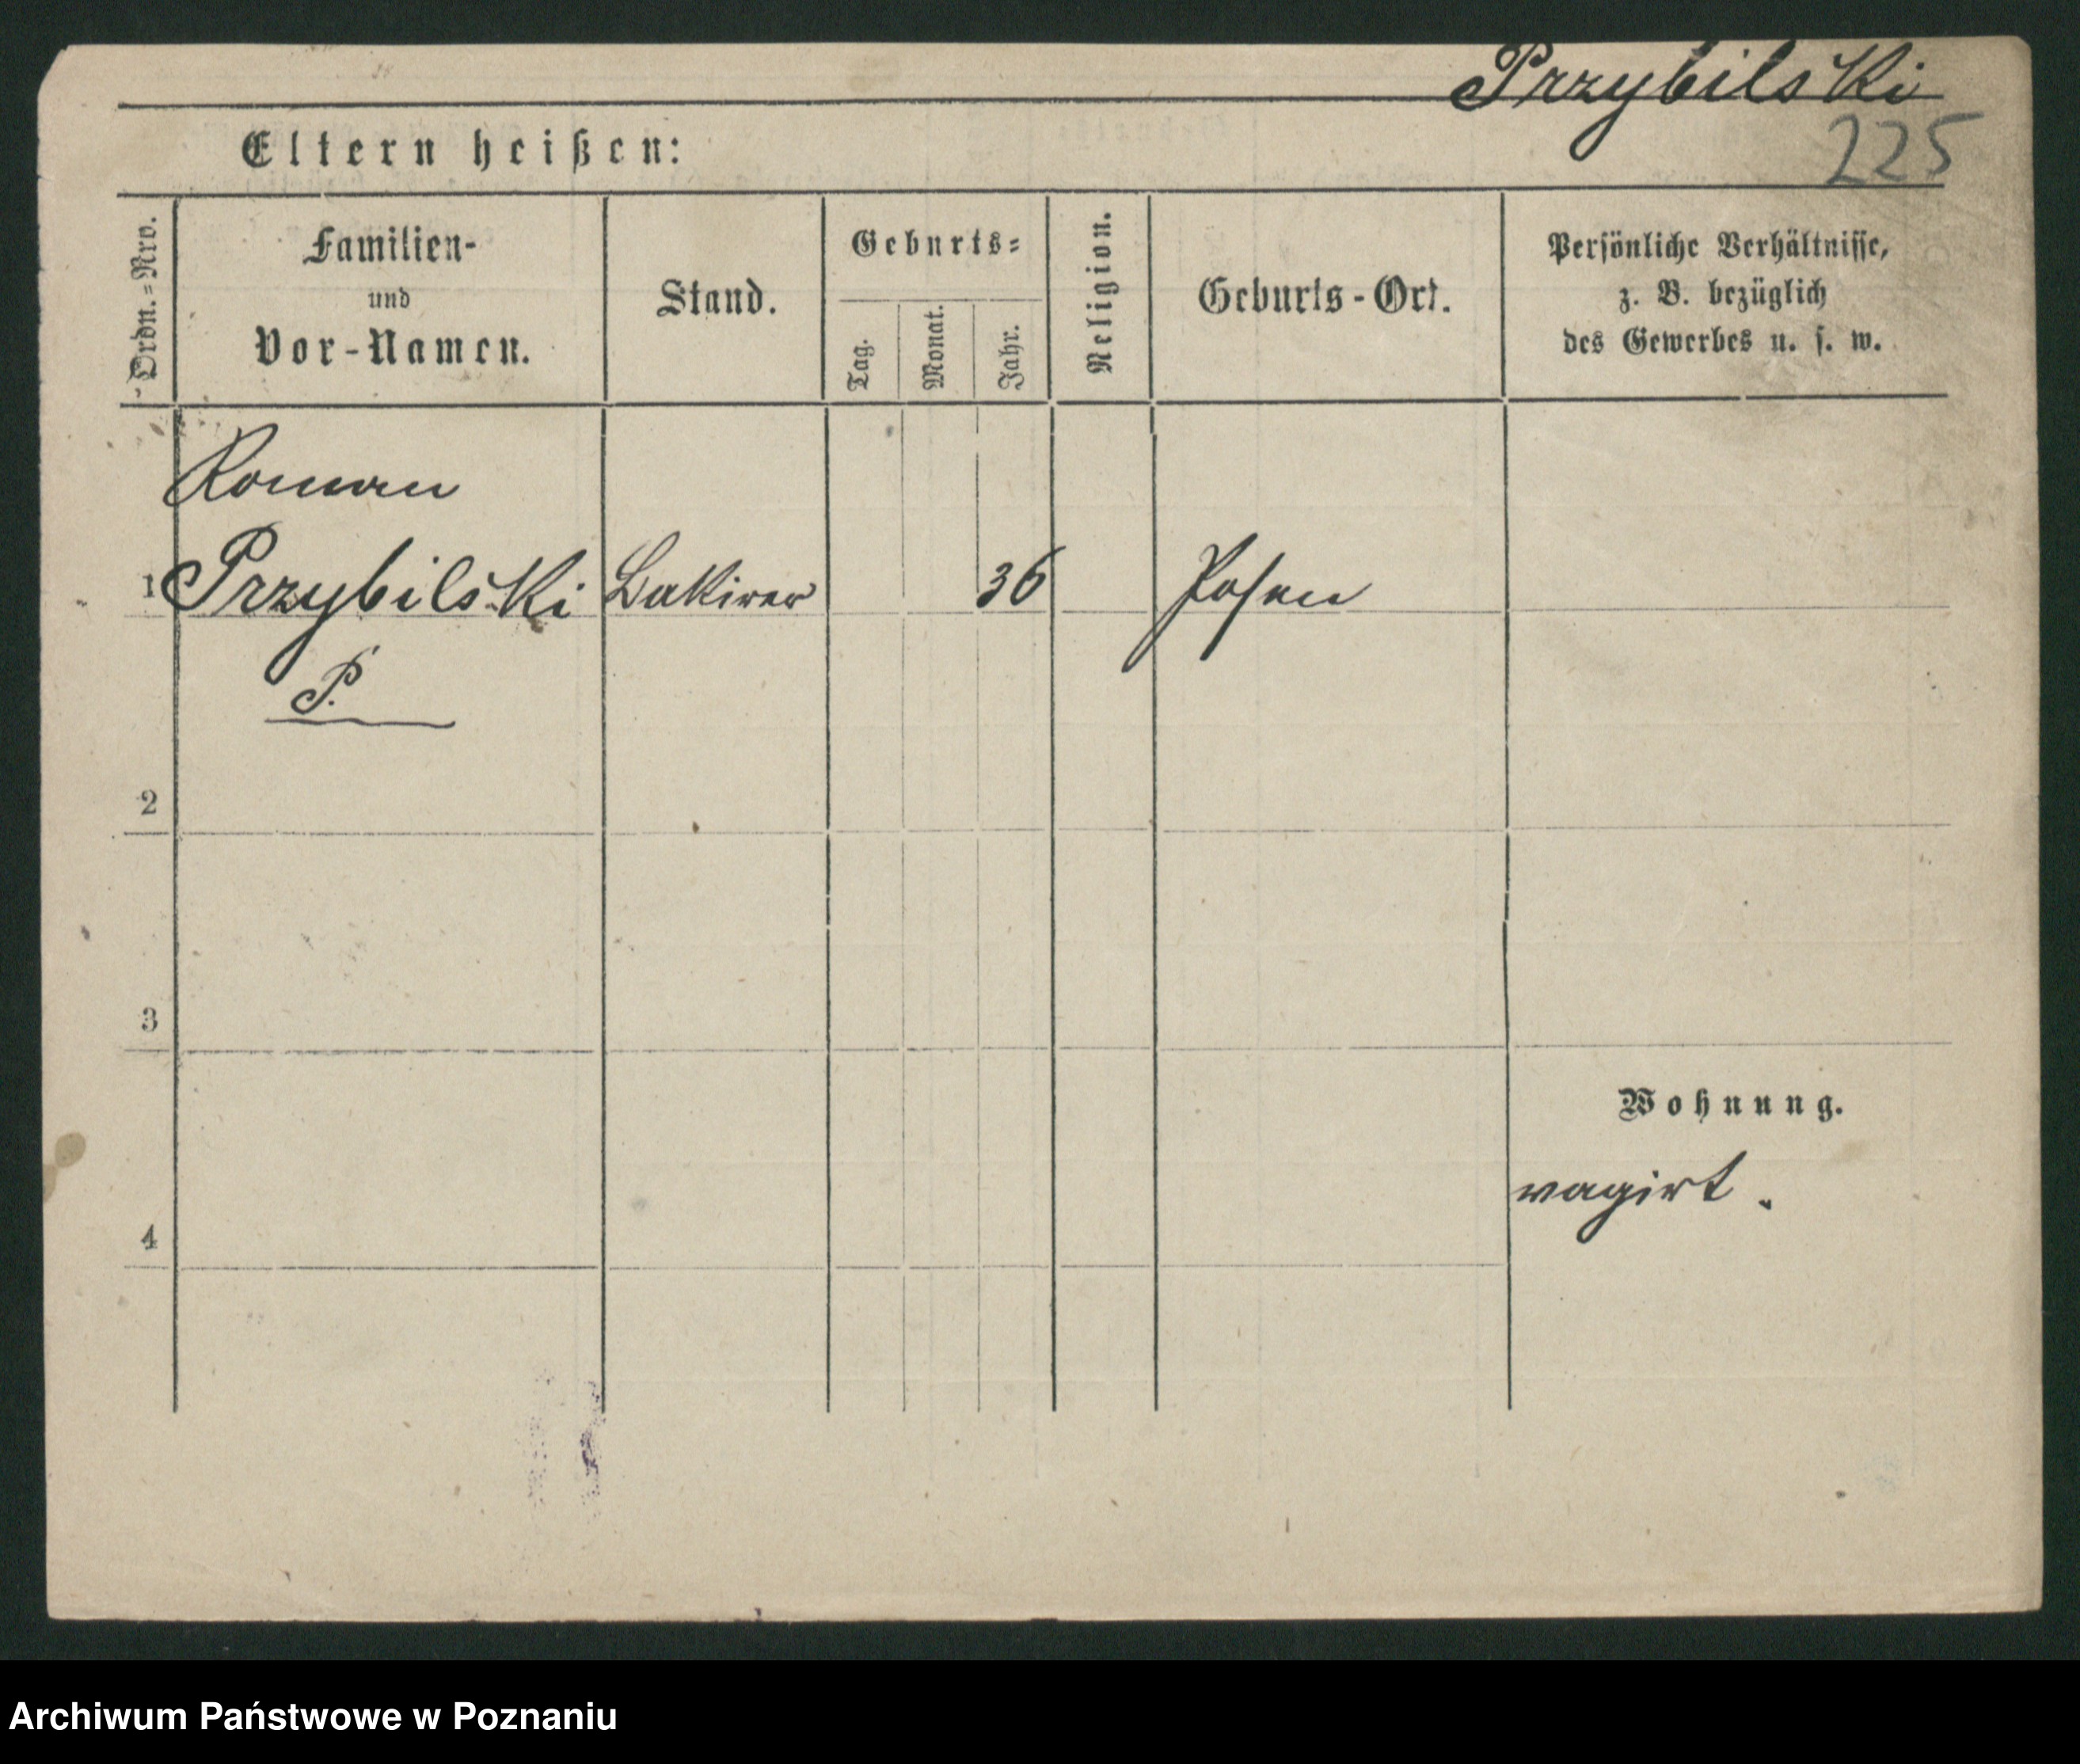 Przybilski
225
Eltern heißen:
Ordn.-Nro.
Familien-
und
Vor-Namen.
Stand.
Geburts-
Tag.
Monat.
Jahr.
Religion.
Geburts-Ort.
Persönliche Verhältnisse,
z. B. bezüglich
des Gewerbes u. s. w.
Roman
1 Przybilski Lakirer 36 Posen
P.
2
3
Wohnung.
vagirt.
4
Archiwum Państwowe w Poznaniu